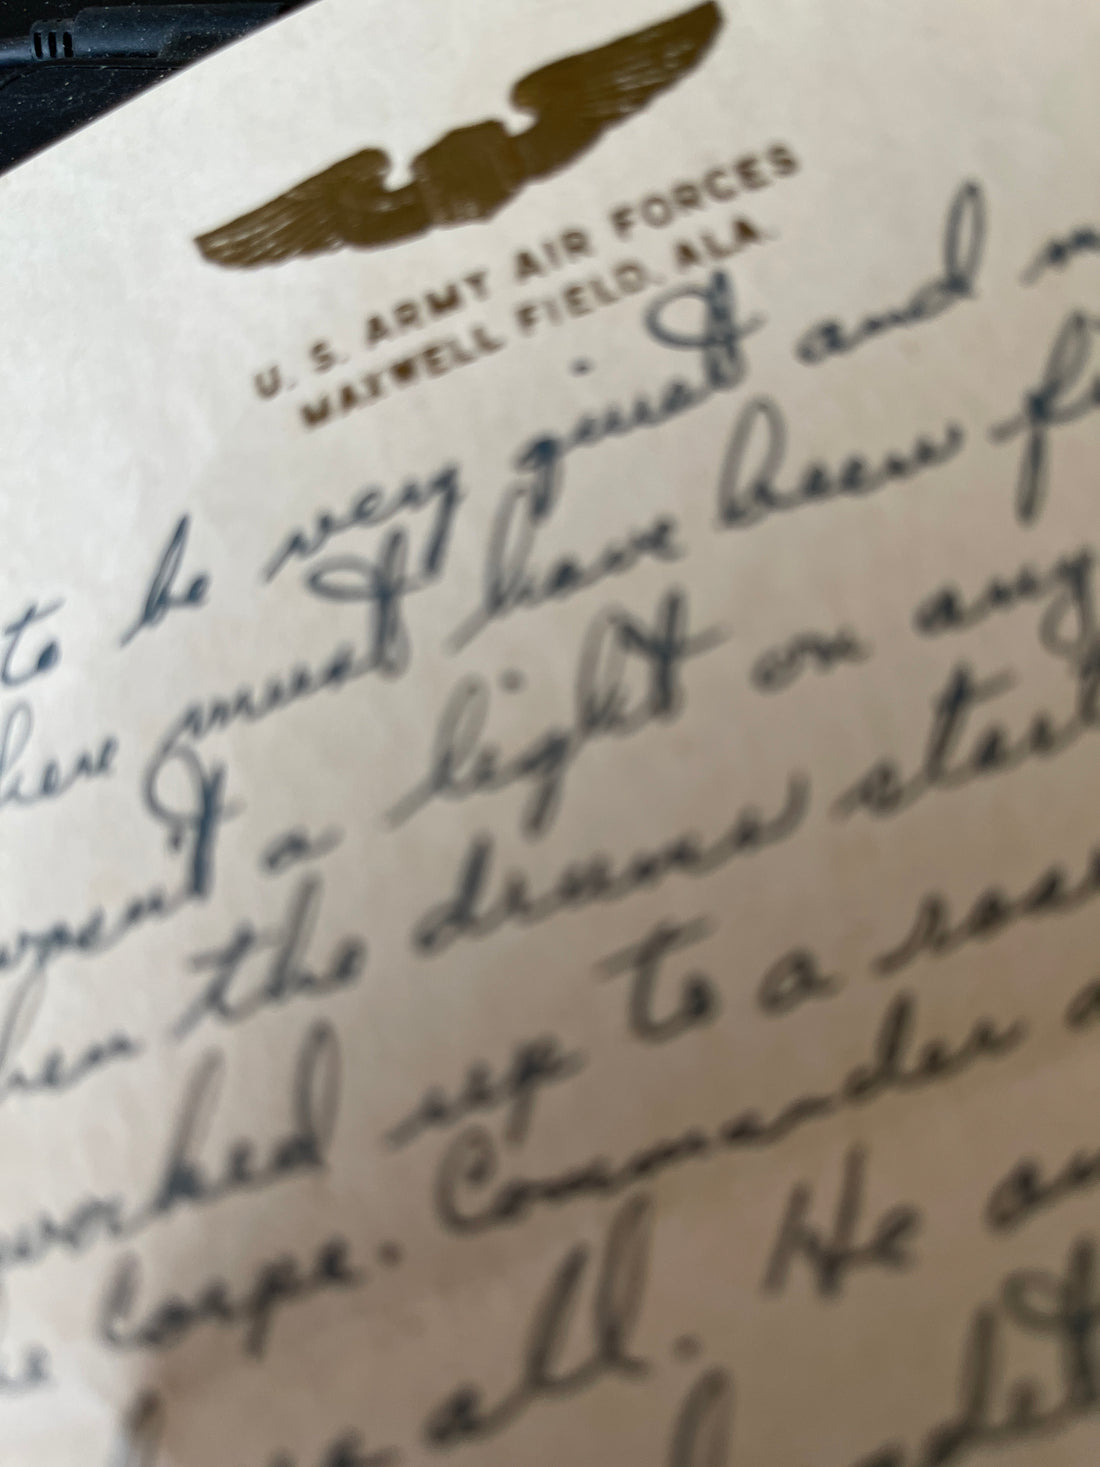 U. S. ARMY AIR FORCES
MAXWELL FIELD, ALA.
to be very quiet and
must have been
a light on any
the drums start
worked up to a
Corps. Commander
all. He